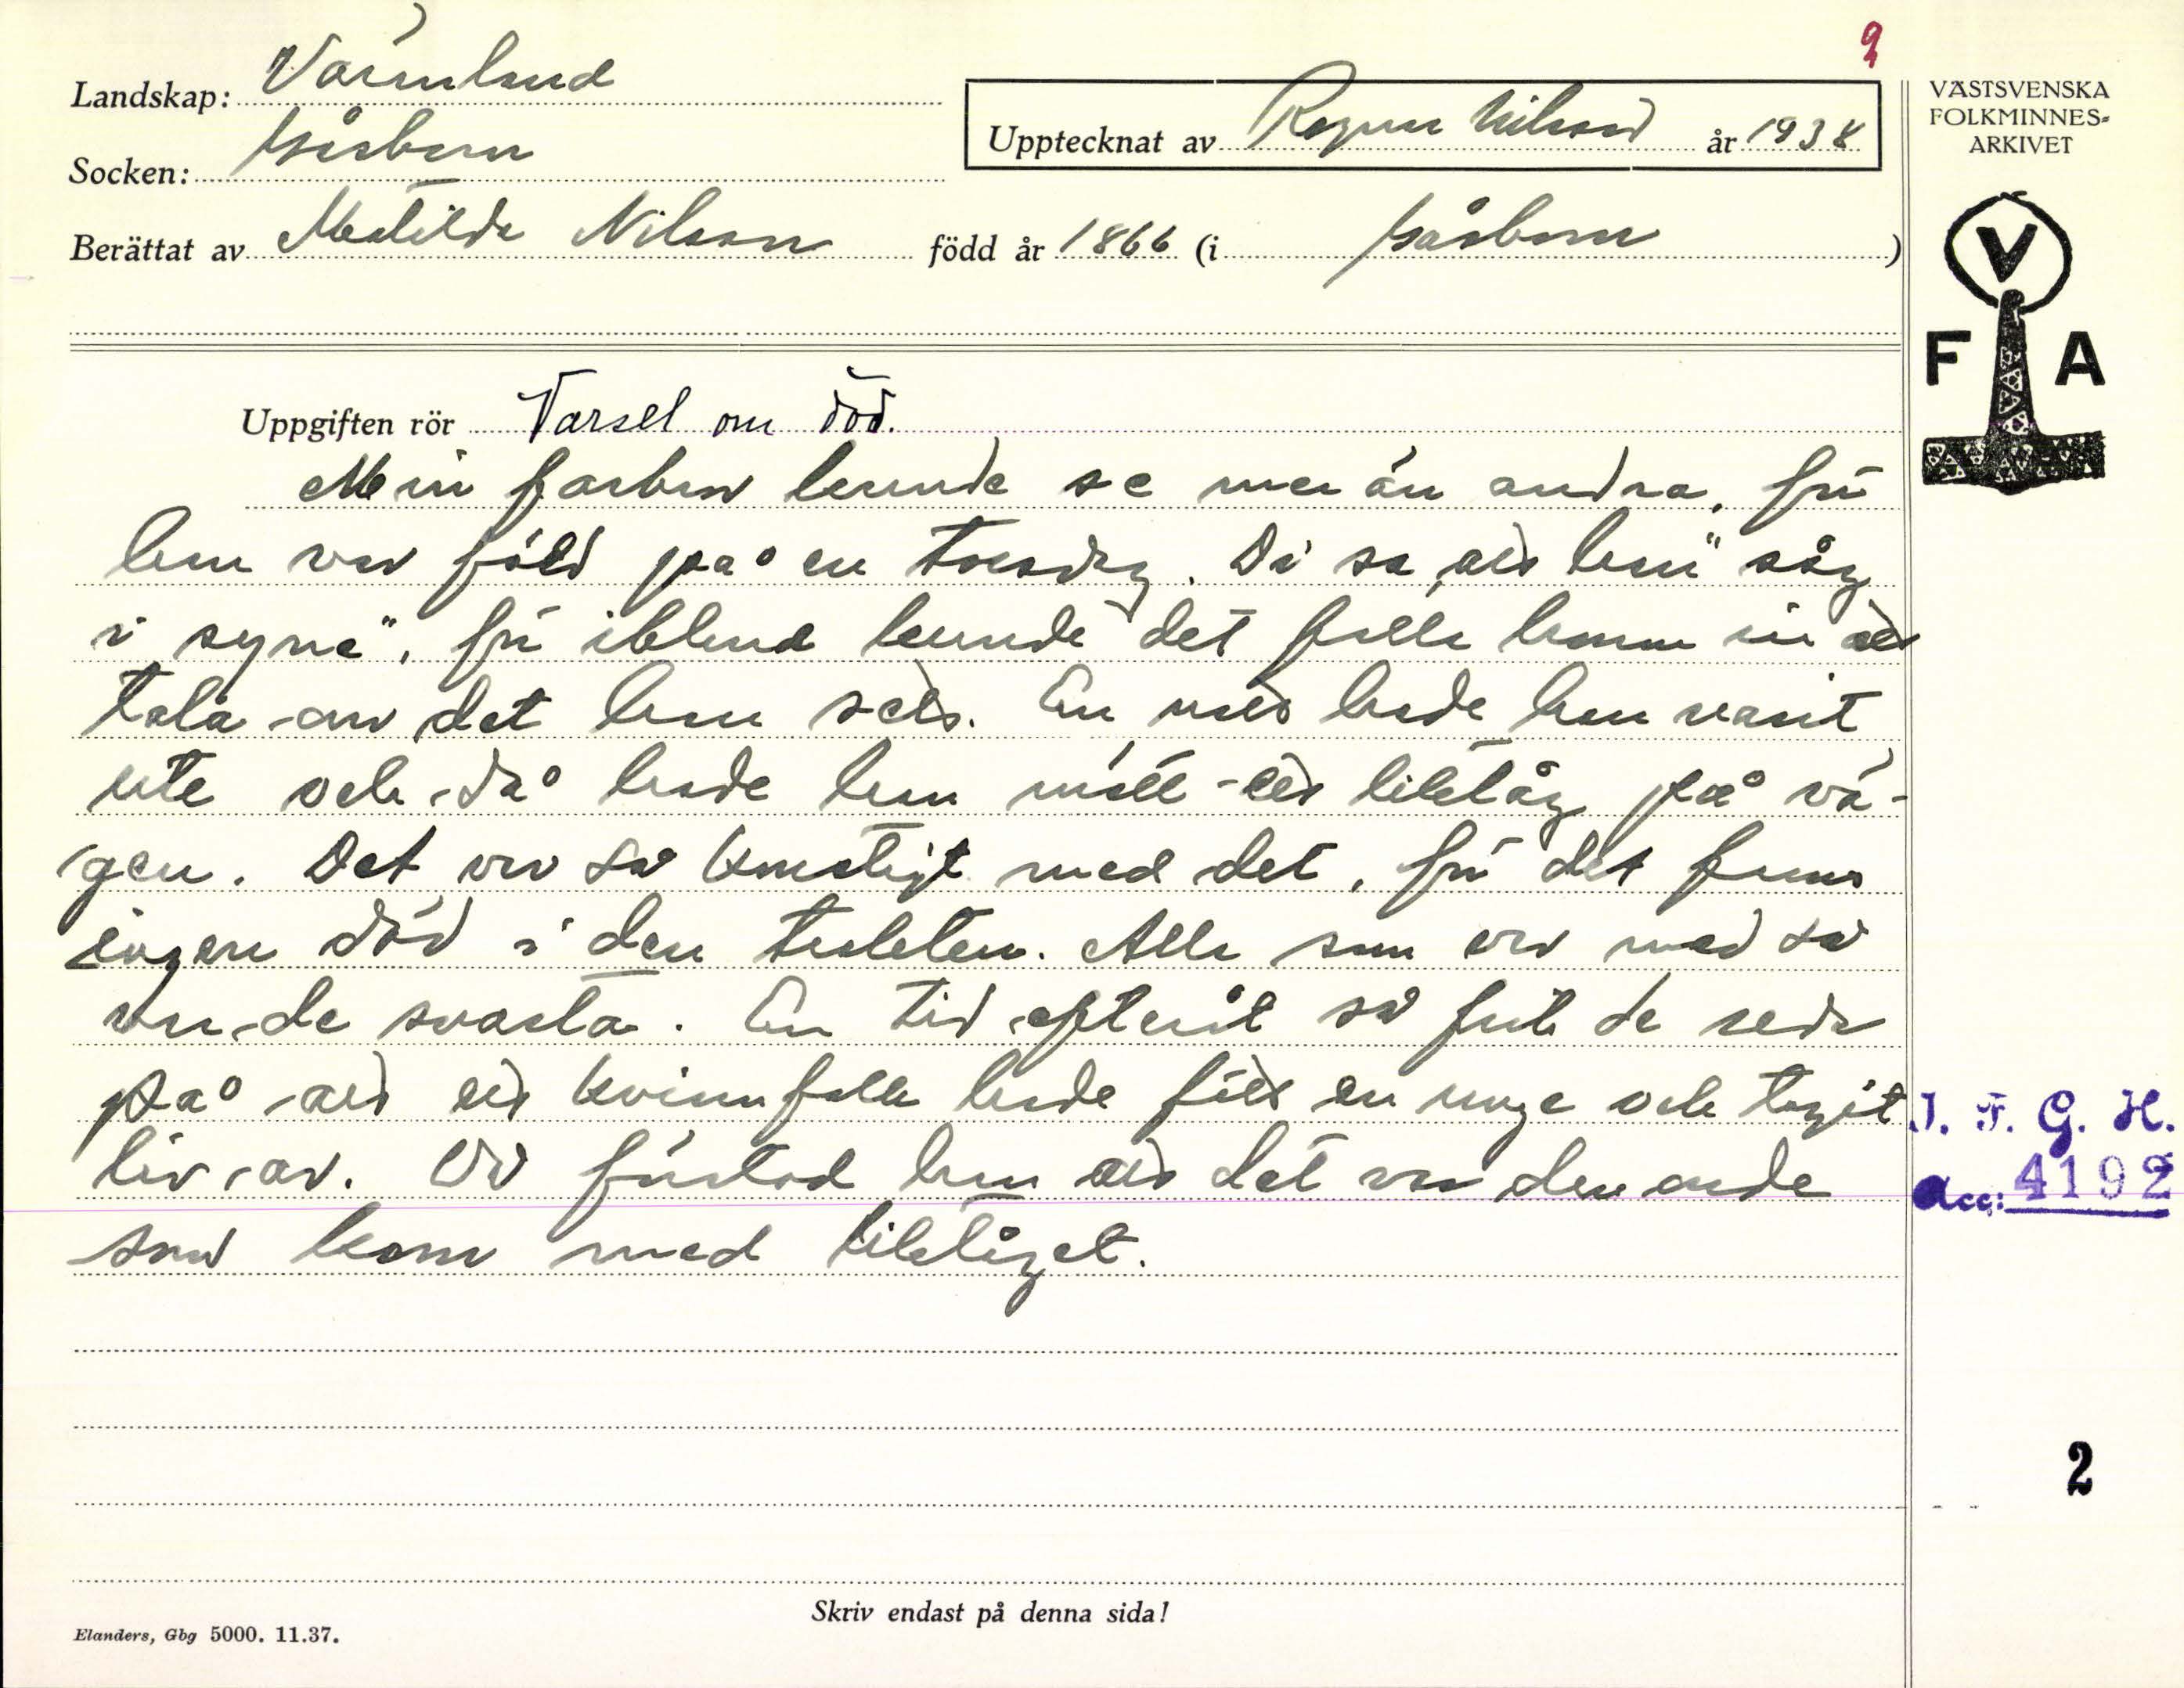 2
Landskap: Värmland
Socken: Gåsborn
Berättat av Matilda Nilsson född år 1866 (i Gåsborn)
Upptecknat av Ragnar Nilsson år 1938
VÄSTSVENSKA
FOLKMINNES-
ARKIVET
V
F A
Uppgiften rör Varsel om död.
Min farbror kunde se mer än andra, för
han var född på en torsdag. Di sa att han "såg
i syne", för ibland kunde det falla honom in att
tala om det han sett. En natt hade han varit
ute och då hade han mött ett liktåg på vä-
gen. Det var så konstigt med det, för det fanns
ingen död i den trakten. Alla som var med så
var de svarta. En tid efteråt så fick de reda
på att ett kvinnfolk hade fött en unge och tagit
liv av. Då förstod han att det var den onde
som kom med liktåget.
I. F. G. H.
Acc: 4192
2
Skriv endast på denna sida!
Elanders, Gbg 5000. 11.37.